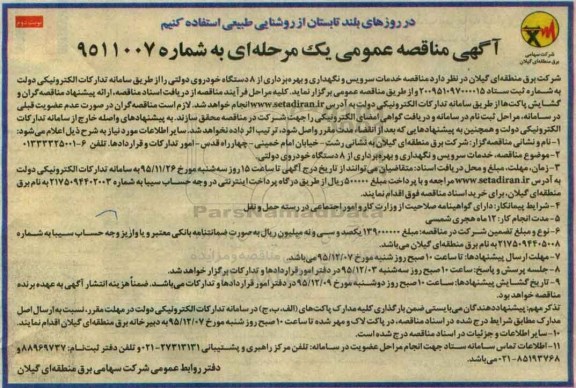 نوبت دوم
در روزهای بلند تابستان از روشنایی طبیعی استفاده کنیم
آگهی مناقصه عمومی یک مرحله‌ای به شماره ۹۵۱۱۰۰۷
شرکت سهامی
برق منطقه‌ای گیلان
شرکت برق منطقه‌ای گیلان در نظر دارد مناقصه خدمات سرویس و نگهداری و بهره‌برداری از ۸ دستگاه خودروی دولتی را از طریق سامانه تدارکات الکترونیکی دولت
به شماره ثبت ستاد ۲۰۰۹۵۱۰۹۷۰۰۰۰۱۵ و از طریق مناقصه عمومی برگزار نماید. کلیه مراحل فرآیند مناقصه از دریافت اسناد مناقصه، ارائه پیشنهاد مناقصه گران و
گشایش پاکت‌ها از طریق سامانه تدارکات الکترونیکی دولت به آدرس www.setadiran.ir انجام خواهد شد. لازم است مناقصه گران در صورت عدم عضویت قبلی
در سامانه، مراحل ثبت نام در سامانه و دریافت گواهی امضای الکترونیکی را جهت شرکت در مناقصه محقق سازند. به پیشنهادهای واصله خارج از سامانه تدارکات
الکترونیکی دولت و همچنین به پیشنهادهایی که بعد از انقضاء مدت مقرر واصل شود، ترتیب اثر داده نخواهد شد. سایر اطلاعات مورد نیاز به شرح ذیل اعلام می‌شود:
۱- نام و نشانی مناقصه گزار: شرکت برق منطقه‌ای گیلان به نشانی رشت - خیابان امام خمینی - چهارراه قدس - امور تدارکات و قراردادها. تلفن ۶-۰۱۳۳۳۳۲۵۰۰۱
۲- موضوع مناقصه: خدمات سرویس و نگهداری و بهره‌برداری از ۸ دستگاه خودروی دولتی.
۳- زمان، مهلت، مبلغ و محل دریافت اسناد: متقاضیان می‌توانند از تاریخ درج آگهی تا ساعت ۱۵ روز سه‌شنبه مورخ ۹۵/۱۱/۲۶ به سامانه تدارکات الکترونیکی دولت
به آدرس www.setadiran.ir مراجعه و با پرداخت مبلغ ۵۰۰۰۰۰ ریال از طریق درگاه پرداخت اینترنتی در وجه حساب سیبا به شماره ۲۱۷۵۰۹۴۴۰۲۰۰۳ به نام برق
منطقه‌ای گیلان، برای خرید اسناد مناقصه فوق اقدام نمایند.
۴- شرایط پیمانکار: دارای گواهینامه صلاحیت از وزارت کار و امور اجتماعی در رسته حمل و نقل
۵- مدت انجام کار: ۱۲ ماه هجری شمسی
۶- نوع و مبلغ تضمین شرکت در مناقصه: مبلغ ۱۳۹۰۰۰۰۰۰ یکصد و سی و نه میلیون ریال به صورت ضمانتنامه بانکی معتبر و یا واریز وجه حساب سیبا به شماره
۲۱۷۵۰۹۴۴۰۵۰۰۸ به نام برق منطقه‌ای گیلان می‌باشد.
۷- مهلت ارسال پیشنهادها: تا ساعت ۱۰ صبح روز شنبه مورخ ۹۵/۱۲/۰۷ می‌باشد.
۸- جلسه پرسش و پاسخ: ساعت ۱۰ صبح روز سه‌شنبه مورخ ۹۵/۱۲/۰۳ در دفتر امور قراردادها و تدارکات برگزار خواهد شد.
۹- تاریخ گشایش پیشنهادها: ساعت ۱۰ صبح روز دوشنبه مورخ ۹۵/۱۲/۰۹ در دفتر امور قراردادها و تدارکات می‌باشد. ضمناً هزینه انتشار آگهی به عهده برنده
مناقصه خواهد بود.
تذکر مهم: پیشنهاددهندگان می‌بایستی ضمن بارگذاری کلیه مدارک پاکت‌های (الف، ب، ج) در سامانه تدارکات الکترونیکی دولت در مهلت مقرر، نسبت به ارسال اصل
مدارک مطابق شرایط درج شده در اسناد مناقصه، در پاکت لاک و مهر شده تا ساعت ۱۰ صبح روز شنبه مورخ ۹۵/۱۲/۰۷ به دبیرخانه برق منطقه‌ای گیلان اقدام نمایند.
۱۰- سایر اطلاعات و جزئیات در اسناد مناقصه درج شده است.
۱۱- اطلاعات تماس سامانه ستاد جهت انجام مراحل عضویت در سامانه: تلفن مرکز راهبری و پشتیبانی ۲۷۳۱۳۱۳۱-۰۲۱ و تلفن دفتر ثبت‌نام: ۸۸۹۶۹۷۳۷ و
۸۵۱۹۳۷۶۸-۰۲۱ می‌باشد.
دفتر روابط عمومی شرکت سهامی برق منطقه‌ای گیلان
ParsNamadData